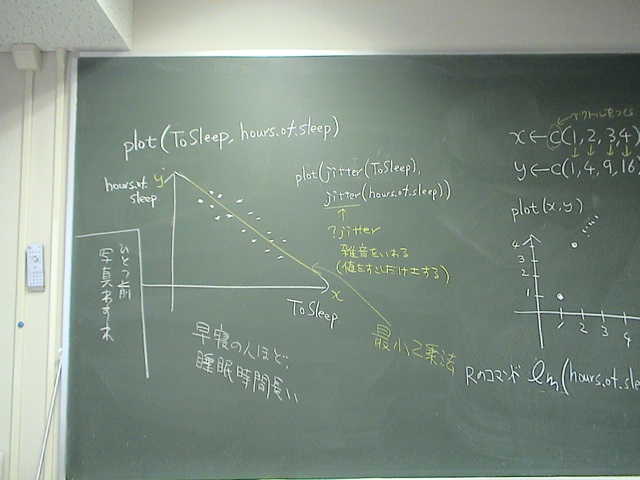 plot(ToSleep, hours.of.sleep)
hours.of.
sleep
y
plot(jitter(ToSleep),
jitter(hours.of.sleep))
↑
?jitter
雑音をいれる
x
ToSleep
最小2乗法
早寝の人ほど、
睡眠時間長い
ひとつ前
写真わすれ
ベクトルをつくる
x←c(1,2,3,4)
y←c(1,4,9,16,
plot(x,y)
4
3
2
1
1 2 3 4
Rのコマンド lm(hours.of.sle